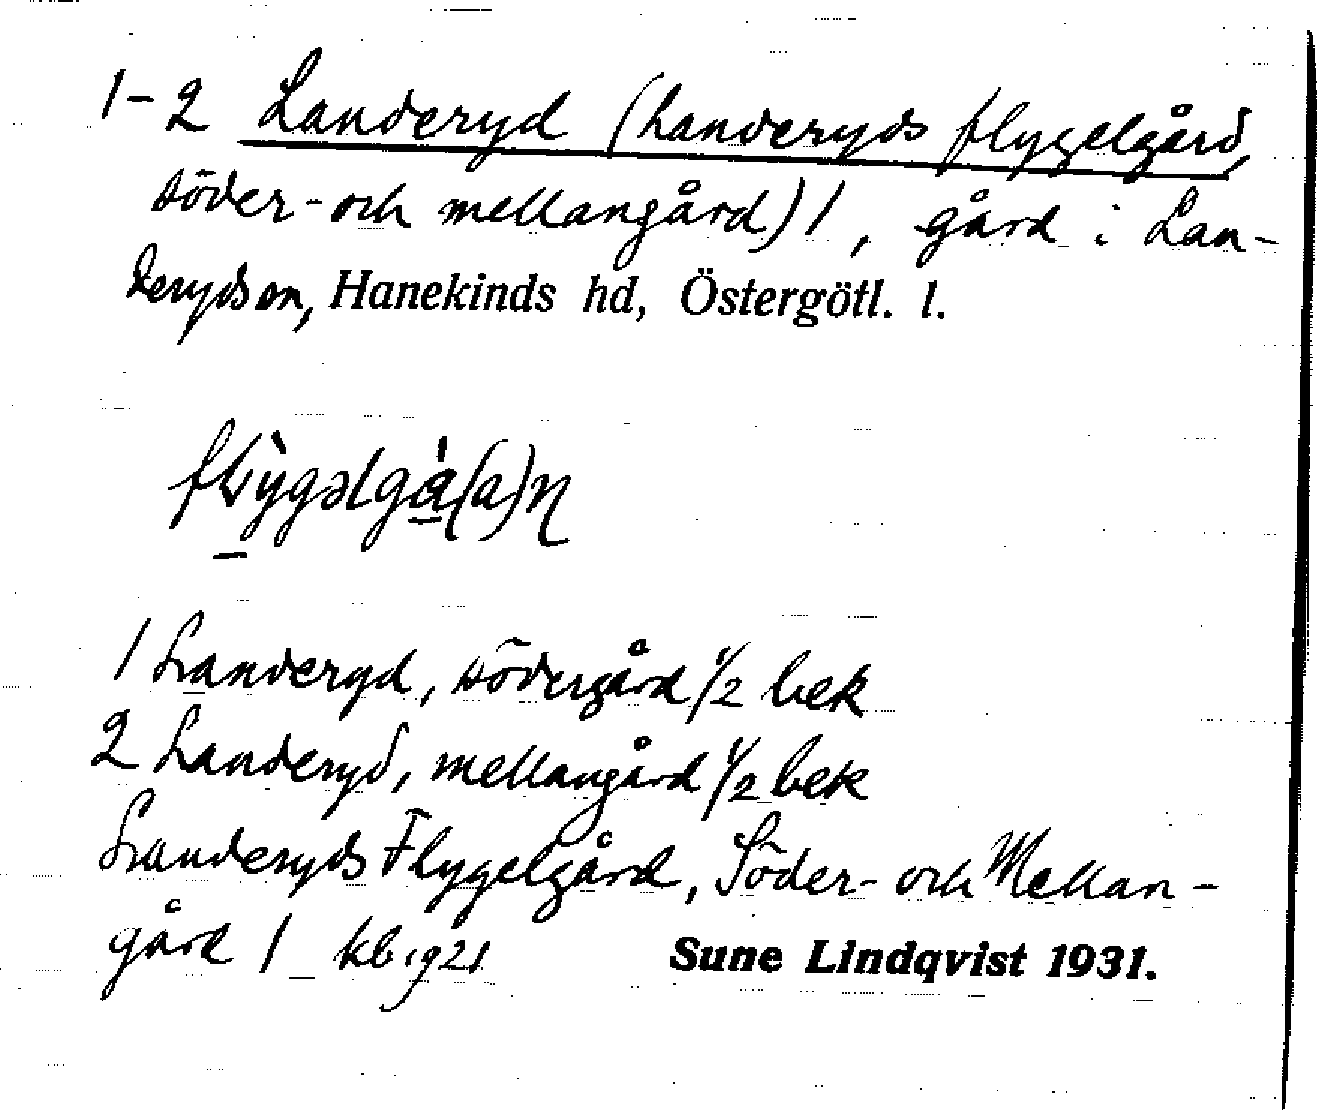 1-2 Landeryd (Landeryds flygelgård,
söder- och mellangård) 1, gård i Lan-
deryds sn, Hanekinds hd, Östergötl. l.
1 Landeryd, södergård 1/2 bek
2 Landeryd, mellangård 1/2 bek
Landeryds Flygelgård, Söder- och Mellan-
gård 1 kb 1921
Sune Lindqvist 1931.